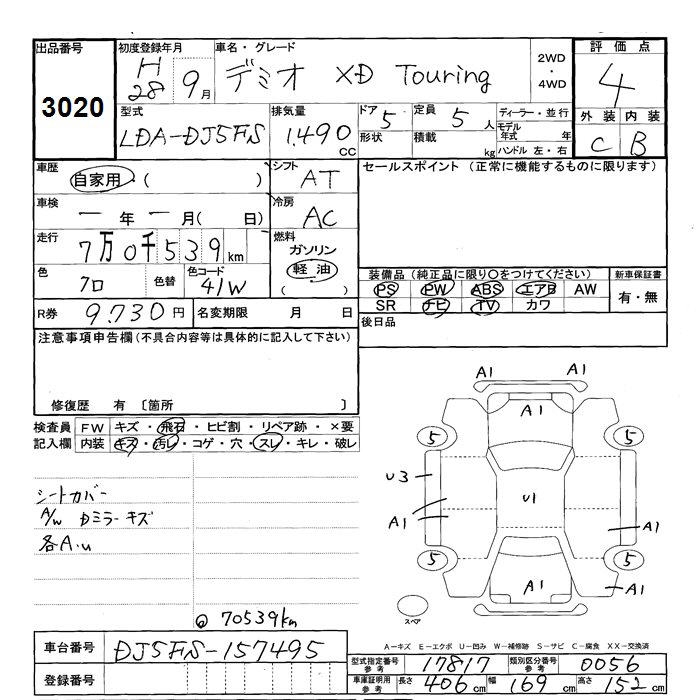 出品番号 初度登録年月 車名・グレード 2WD・4WD 評価点
3020 H28 9月 デミオ XD Touring 4
型式 排気量 ドア 形状 定員 積載 ディーラー・並行 外装 内装
LDA-DJ5FS 1.490CC 5 5人 kg モデル年式 年 C B
ハンドル 左・右
車歴 自家用・( ) シフト AT セールスポイント (正常に機能するものに限ります)
車検 一年一月( 日) 冷房 AC
走行 7万0千539km 燃料 ガソリン
軽油 ( )
色 クロ 色替 色コード 41W 装備品 (純正品に限り○をつけてください) 新車保証書
PS PW ABS エアB AW 有・無
SR ナビ TV カワ
R券 9.730円 名変期限 月 日 後日品
注意事項申告欄(不具合内容等は具体的に記入して下さい)
修復歴 有 〔箇所 〕
検査員 FW キズ・飛石・ヒビ割・リペア跡・×要
記入欄 内装 キズ・汚レ・コゲ・穴・スレ・キレ・破レ
A1 A1
A1
5 5
シートカバー U3
U1
A/W Dミラーキズ A1 A1
各A.U
5 5
A1 A1
スペア
@ 70539km
A−キズ E−エクボ U−凹み W−補修跡 S−サビ C−腐食 XX−交換済
車台番号 DJ5FS-157495 型式指定番号 参考 17817 類別区分番号 参考 0056
登録番号 車庫証明用 参考 長さ 406cm 幅 169cm 高さ 152cm